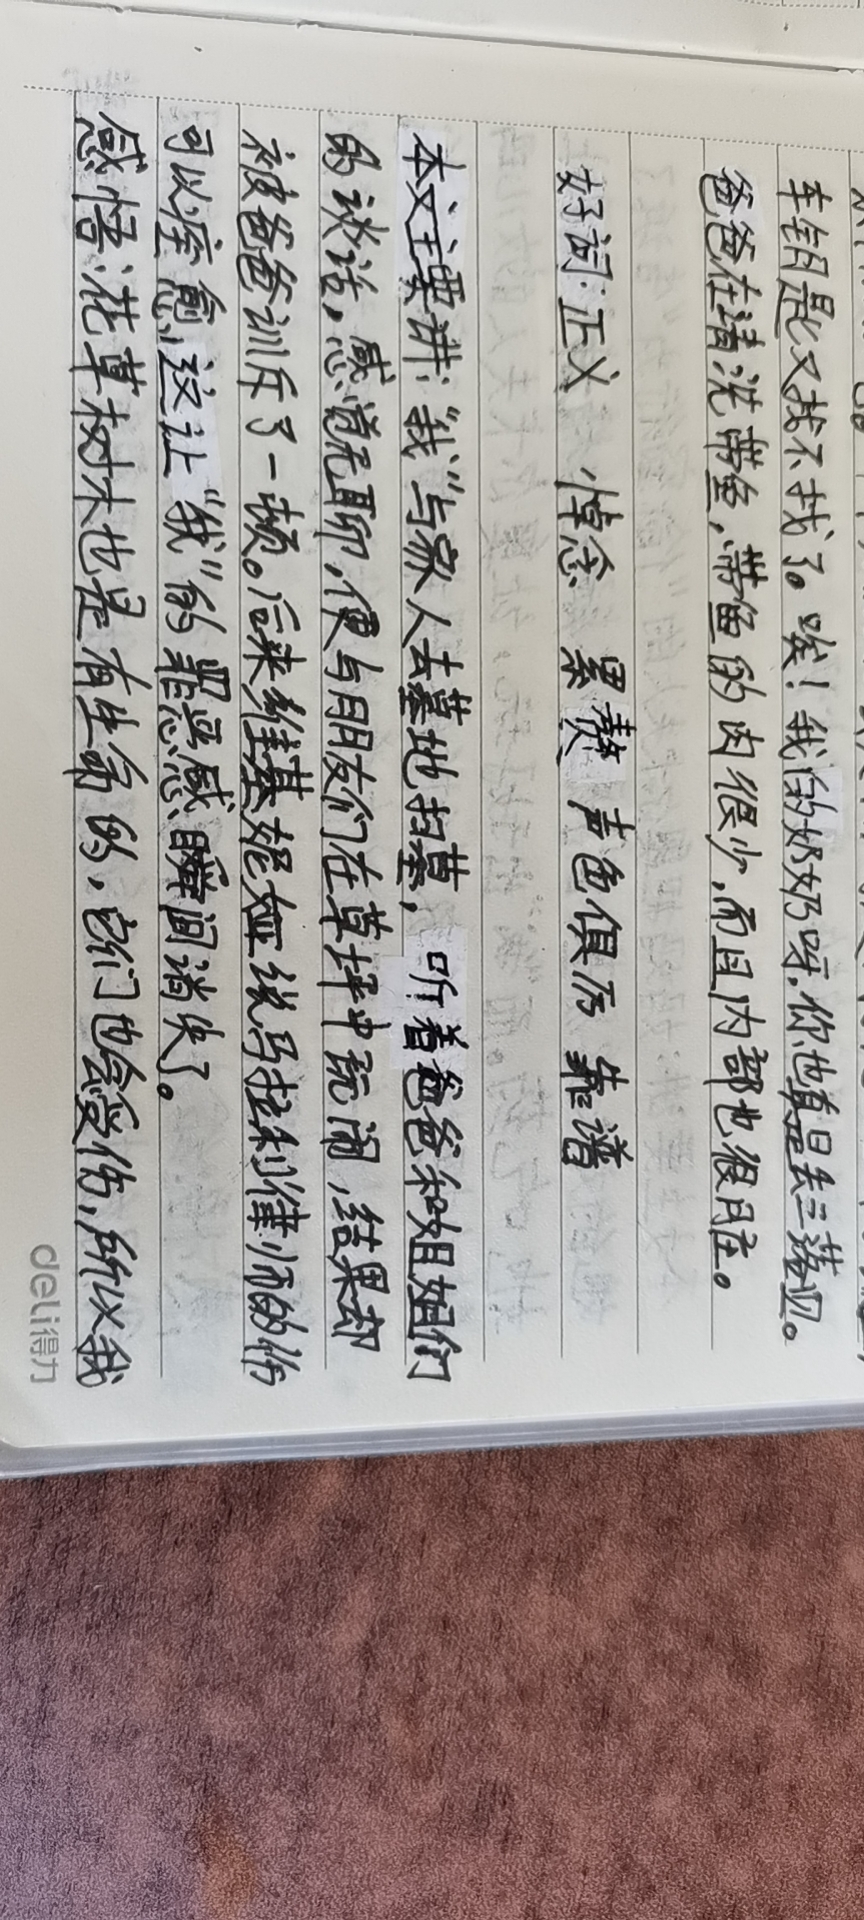 车钥是又找不找了。唉！我的奶奶呀，你也真是丢三落四。
爸爸在清洗带鱼，带鱼的肉很少，而且内部也很脏。
好词：正义 悼念 累赘 声色俱厉 靠谱
本文主要讲：“我”与家人去墓地扫墓，听着爸爸和姐姐们
的谈话，感觉无聊，便与朋友们在草坪中玩闹，结果却
被爸爸训斥了一顿。后来维基妮娅说马拉利律师的伤
可以痊愈，这让“我”的罪恶感瞬间消失了。
感悟：花草树木也是有生命的，它们也会受伤，所以我
deli得力